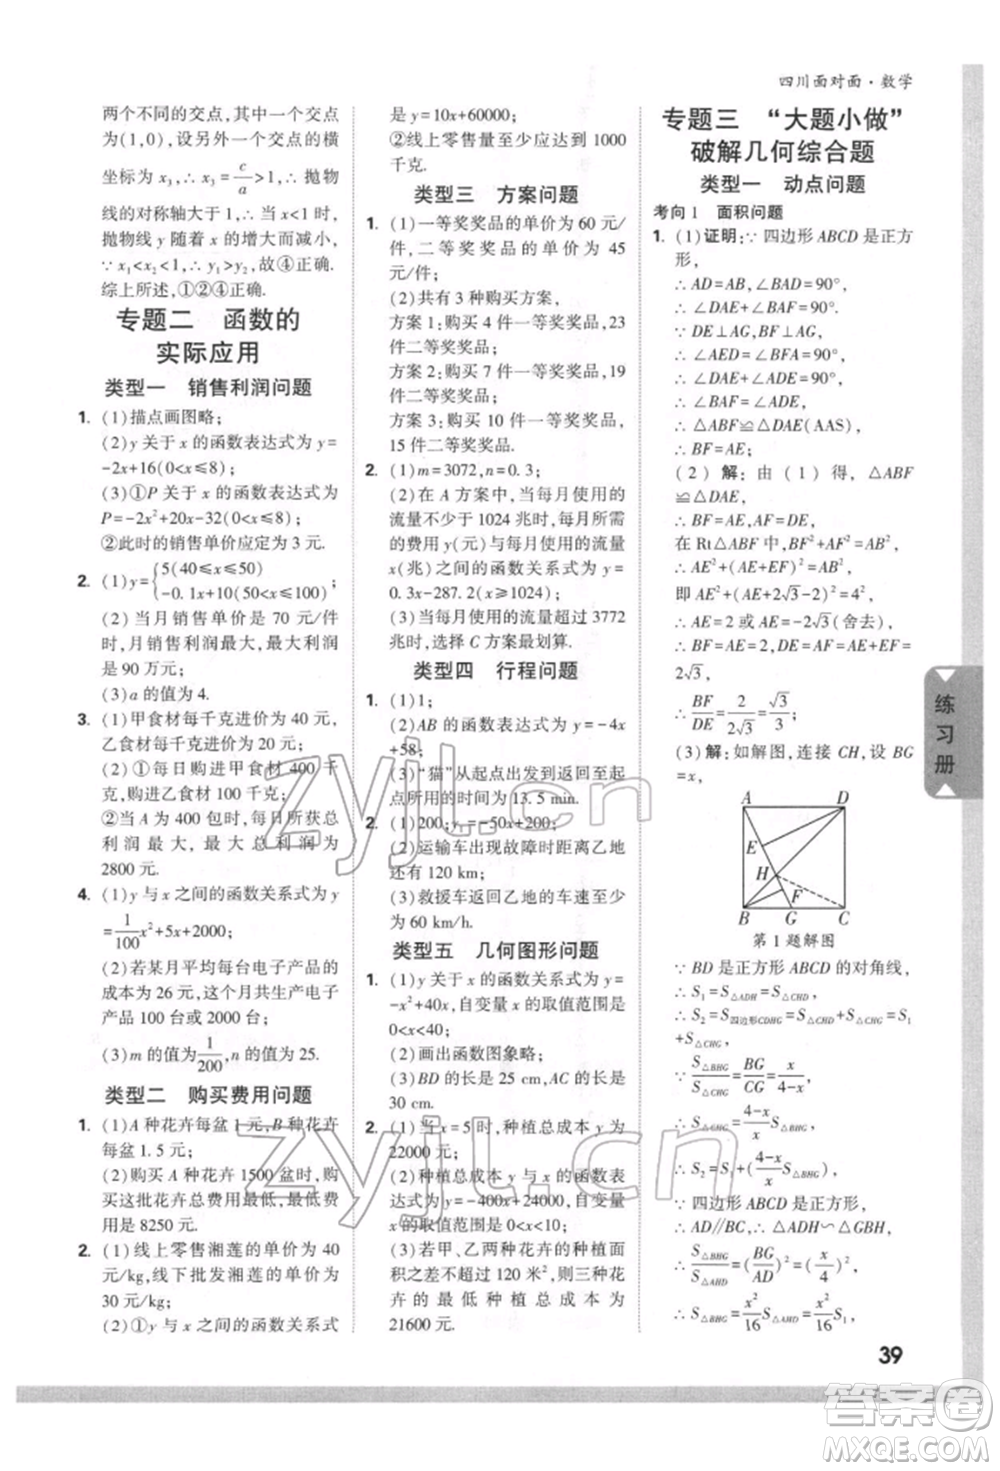 四川面对面·数学
两个不同的交点,其中一个交点为
(1,0),设另外一个交点的横
坐标为 x₃,∴x₃=c/a>1,∴抛物
线的对称轴大于 1,∴x<1 时,
抛物线 y 随 x 的增大而减小,
∵x₁<x₂<1,∴y₁>y₂,故④正确.
综上所述,①②④正确.
专题二 函数的
实际应用
类型一 销售利润问题
1. (1)描点画图略;
(2)y 关于 x 的函数表达式为 y=
-2x+16(0<x≤8);
(3)①P 关于 x 的函数表达式为
P=-2x²+20x-32(0<x≤8);
②此时的销售单价应定为 3 元.
2. (1)y={5(40≤x≤50)
-0.1x+10(50<x≤100);
(2)当月销售单价是 70 元/件
时,月销售利润最大,最大利润
是 90 万元;
(3)a 的值为 4.
3. (1)甲食材每千克进价为 40 元,
乙食材每千克进价为 20 元;
(2)①每日购进甲食材 400 千
克,乙食材 100 千克;
②当 A 为 400 包时,每日所获总
利润最大,最大总利润为
2800 元.
4. (1)y 与 x 之间的函数关系式为 y
=1/100x²+5x+2000;
(2)若某月平均每台电子产品的
成本为 26 元,这个月共生产电子
产品 100 台或 2000 台;
(3)m 的值为1/200,n 的值为 25.
类型二 购买费用问题
1. (1)A 种花卉每盆 1 元,B 种花卉
每盆 1.5 元;
(2)购买 A 种花卉 1500 盆时,购
买这批花卉总费用最低,最低费
用为 8250 元.
2. (1)线上零售湘莲的单价为 40
元/kg,线下批发湘莲的单价为
30 元/kg;
(2)①y 与 x 之间的函数关系式
是 y=10x+60000;
②线上零售量至少应达到 1000
千克.
类型三 方案问题
1. (1)一等奖奖品的单价为 60 元/
件,二等奖奖品的单价为 45
元/件;
(2)共有 3 种购买方案,
方案 1:购买 4 件一等奖奖品,23
件二等奖奖品;
方案 2:购买 7 件一等奖奖品,19
件二等奖奖品;
方案 3:购买 10 件一等奖奖品,
15 件二等奖奖品.
2. (1)m=3072,n=0.3;
(2)在 A 方案中,当每月使用的
流量不少于 1024 兆时,每月所花
费用 y(元)与每月使用的流量
x(兆)之间的函数关系式为 y=
0.3x-287.2(x≥1024);
(3)当每月使用的流量超过 3772
兆时,选择 C 方案最划算.
类型四 行程问题
1. (1)1;
(2)AB 的函数表达式为 y=-4x
+58;
(3)“猫”从起点出发到返回至起
点所用的时间为 13.5 min.
2. (1)200;y₁=-50x+200;
(2)运输车出故障时距离乙地
还有 120 km;
(3)救援车返回乙地的车速至少
为 60 km/h.
类型五 几何图形问题
1. (1)y 关于 x 的函数关系式为 y=
-x²+40x,自变量 x 的取值范围是
0<x<40;
(2)画出函数图象略;
(3)BD 的长是 25 cm,AC 的长是
30 cm.
2. (1)当 x=5 时,种植总成本为
22000 元;
(2)种植总成本 y 与 x 的函数表
达式为 y=-400x+24000,自变量
x 的取值范围是 0<x<10;
(3)若甲、乙两种花卉的种植面
积之差不超过 120 米²,则三种花
卉的最低种植总成本为
21600 元.
专题三 “大题小做”
破解几何综合题
类型一 动点问题
考向 1 面积问题
1. (1)证明:∵四边形 ABCD 是正方
形,
∴AD=AB,∠BAD=90°,
∴∠DAE+∠BAF=90°.
∵DE⊥AG,BF⊥AG,
∴∠AED=∠BFA=90°,
∴∠DAE+∠ADE=90°,
∴∠BAF=∠ADE,
∴△ABF≌△DAE(AAS),
∴BF=AE;
(2)解:由(1)得,△ABF
≌△DAE,
∴BF=AE,AF=DE,
在 Rt△ABF 中,BF²+AF²=AB²,
∴AE²+(AE+EF)²=4²,
即 AE²+(AE+2√3-2)²=4²,
∴AE=2 或 AE=-2√3(舍去),
∴BF=AE=2,DE=AF=
2√3,
∴BF/DE=2/2√3=√3/3;
(3)解:如解图,连接 CH,设 BG
=x,
A D
E
H
F
B G C
第 1 题解图
∵BD 是正方形 ABCD 的对角线,
∴S₁=S△ADH=S△CHD,
∴S₂=S四边形CDHG=S△CHD+S△CHG=S₁
+S△CHG,
∵S△BHG/S△CHG=BG/CG=x/(4-x),
∴S△CHG=(4-x)/x S△BHG,
∴S₂=S₁+(4-x)/x S△BHG,
∵四边形 ABCD 是正方形,
∴AD∥BC,∴△ADH∽△GBH,
∴S△BHG/S△AHD=(BG/AD)²=(x/4)²,
∴S△BHG=x²/16S△AHD=x²/16S₁,
练习册
39
zyjl.cn
zyjl.cn
答案圈
MXQE.COM